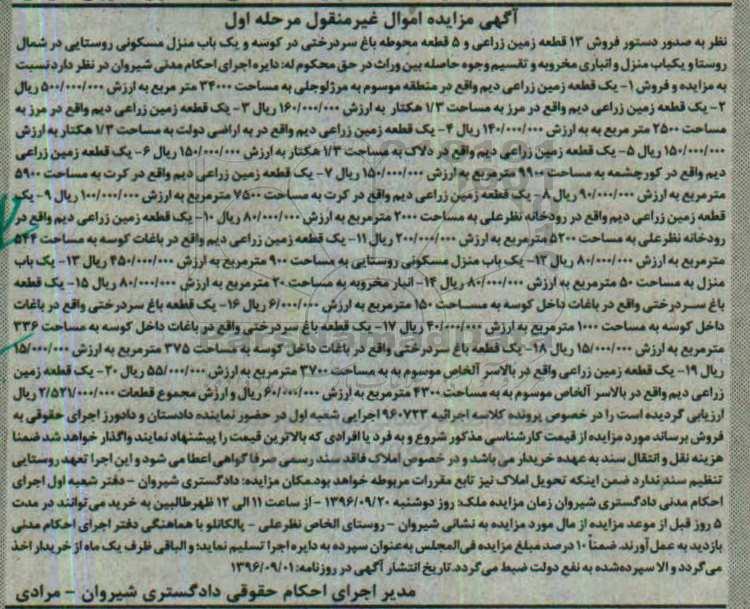 آگهی مزایده اموال غیرمنقول مرحله اول
نظر به صدور دستور فروش ۱۳ قطعه زمین زراعی و ۵ قطعه محوطه باغ سردرختی در کوسه و یک باب منزل مسکونی روستایی در شمال
روستا و یکباب منزل و انباری مخروبه و تقسیم وجوه حاصله بین وراث در حق محکوم له: دایره اجرای احکام مدنی شیروان در نظر دارد نسبت
به مزایده و فروش ۱- یک قطعه زمین زراعی دیم واقع در منطقه موسوم به مرژلوجلی به مساحت ۳۴۰۰۰ متر مربع به ارزش ۵۰۰/۰۰۰/۰۰۰ ریال
۲- یک قطعه زمین زراعی دیم واقع در مرز به مساحت ۱/۳ هکتار به ارزش ۱۶۰/۰۰۰/۰۰۰ ریال ۳- یک قطعه زمین زراعی دیم واقع در مرز به
مساحت ۲۵۰۰ متر مربع به به ارزش ۱۴۰/۰۰۰/۰۰۰ ریال ۴- یک قطعه زمین زراعی دیم واقع در به اراضی دولت به مساحت ۱/۳ هکتار به ارزش
۱۵۰/۰۰۰/۰۰۰ ریال ۵- یک قطعه زمین زراعی دیم واقع در دلاک به مساحت ۱/۳ هکتار به ارزش ۱۵۰/۰۰۰/۰۰۰ ریال ۶- یک قطعه زمین زراعی
دیم واقع در کورچشمه به مساحت ۹۹۰۰ مترمربع به ارزش ۱۵۰/۰۰۰/۰۰۰ ریال ۷- یک قطعه زمین زراعی دیم واقع در کرت به مساحت ۵۹۰۰
مترمربع به ارزش ۹۰/۰۰۰/۰۰۰ ریال ۸- یک قطعه زمین زراعی دیم واقع در کرت به مساحت ۷۵۰۰ مترمربع به ارزش ۱۰۰/۰۰۰/۰۰۰ ریال ۹- یک
قطعه زمین زراعی دیم واقع در رودخانه نظرعلی به مساحت ۲۰۰۰ مترمربع به ارزش ۸۰/۰۰۰/۰۰۰ ریال ۱۰- یک قطعه زمین زراعی دیم واقع در
رودخانه نظرعلی به مساحت ۵۲۰۰ مترمربع به ارزش ۲۰۰/۰۰۰/۰۰۰ ریال ۱۱- یک قطعه زمین زراعی دیم واقع در باغات کوسه به مساحت ۵۴۴
مترمربع به ارزش ۸۰/۰۰۰/۰۰۰ ریال ۱۲- یک باب منزل مسکونی روستایی به مساحت ۹۰۰ مترمربع به ارزش ۴۵۰/۰۰۰/۰۰۰ ریال ۱۳- یک باب
منزل به مساحت ۵۰ مترمربع به ارزش ۸۰/۰۰۰/۰۰۰ ریال ۱۴- انبار مخروبه به مساحت ۲۰ مترمربع به ارزش ۸۰/۰۰۰/۰۰۰ ریال ۱۵- یک قطعه
باغ سردرختی واقع در باغات داخل کوسه به مساحت ۱۵۰ مترمربع به ارزش ۶/۰۰۰/۰۰۰ ریال ۱۶- یک قطعه باغ سردرختی واقع در باغات
داخل کوسه به مساحت ۱۰۰۰ مترمربع به ارزش ۴۰/۰۰۰/۰۰۰ ریال ۱۷- یک قطعه باغ سردرختی واقع در باغات داخل کوسه به مساحت ۳۳۶
مترمربع به ارزش ۱۵/۰۰۰/۰۰۰ ریال ۱۸- یک قطعه باغ سردرختی واقع در باغات داخل کوسه به مساحت ۳۷۵ مترمربع به ارزش ۱۵/۰۰۰/۰۰۰
ریال ۱۹- یک قطعه زمین زراعی واقع در بالاسر آلخاص موسوم به به مساحت ۳۷۰۰ مترمربع به ارزش ۵۵/۰۰۰/۰۰۰ ریال ۲۰- یک قطعه زمین
زراعی دیم واقع در بالاسر آلخاص موسوم به به مساحت ۴۳۰۰ مترمربع به ارزش ۶۰/۰۰۰/۰۰۰ ریال و ارزش مجموع قطعات ۲/۵۲۱/۰۰۰/۰۰۰ ریال
ارزیابی گردیده است را در خصوص پرونده کلاسه اجرائیه ۹۶۰۷۲۳ اجرایی شعبه اول در حضور نماینده دادستان و دادورز اجرای حقوقی به
فروش برساند مورد مزایده از قیمت کارشناسی مذکور شروع و به فرد یا افرادی که بالاترین قیمت را پیشنهاد نمایند واگذار خواهد شد ضمنا
هزینه نقل و انتقال سند به عهده خریدار می باشد و در خصوص املاک فاقد سند رسمی صرفا گواهی اعطا می شود و این اجرا تعهد روستایی
تنظیم سند ندارد ضمن اینکه تحویل املاک نیز تابع مقررات مربوطه خواهد بود.مکان مزایده: دادگستری شیروان - دفتر شعبه اول اجرای
احکام مدنی دادگستری شیروان زمان مزایده ملک: روز دوشنبه ۱۳۹۶/۰۹/۲۰ - از ساعت ۱۱ الی ۱۲ ظهرطالبین به خرید می توانند در مدت
۵ روز قبل از موعد مزایده از مال مورد مزایده به نشانی شیروان - روستای الخاص نظرعلی - پالکانلو با هماهنگی دفتر اجرای احکام مدنی
بازدید به عمل آورند. ضمناً ۱۰ درصد مبلغ مزایده فی‌المجلس به‌عنوان سپرده به دایره اجرا تسلیم نماید: و الباقی ظرف یک ماه از خریدار اخذ
می‌گردد و الا سپرده‌شده به نفع دولت ضبط می‌گردد. تاریخ انتشار آگهی در روزنامه: ۱۳۹۶/۰۹/۰۱
مدیر اجرای احکام حقوقی دادگستری شیروان - مرادی